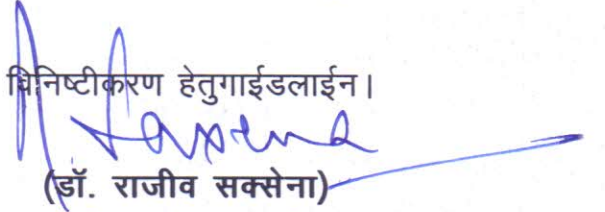 विनिष्टीकरण हेतुगाईडलाईन।
(डॉ. राजीव सक्सेना)